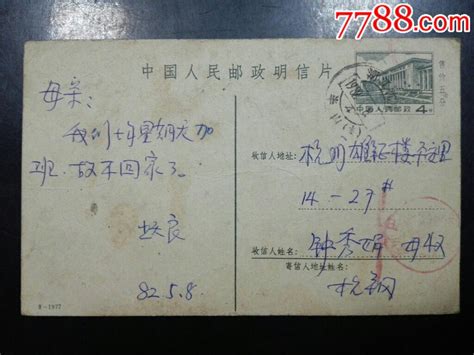 7788.com
中国人民邮政明信片
售价五分
中国人民邮政
4分
母亲：
我们七年星期天加
班，故不回家了。
82.5.8.
收信人地址：杭州
14-27#
收信人姓名：钟秀娟 母收
寄信人地址姓名：
杭钢
8-1977